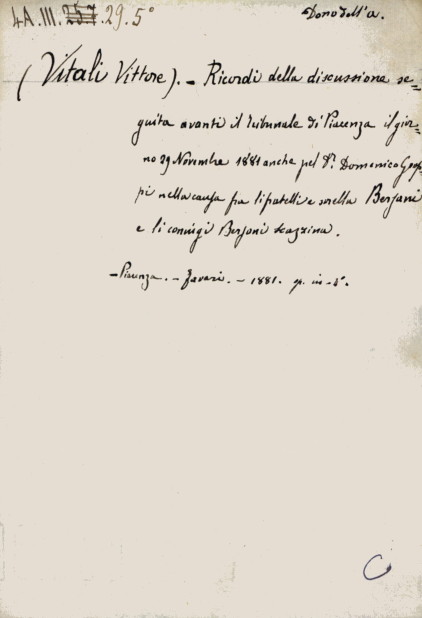 4A.III.257.29.5°
Dono dell'a.
(Vitali Vittore). - Ricordi della discussione se=
guita avanti il Tribunale di Piacenza il gior=
no 29 Novembre 1881 anche pel Dr. Domenico
pi nella causa fra li fratelli e sorella Bersani
e li coniugi Bersani Scazzina.
- Piacenza. - - 1881. in-4°.